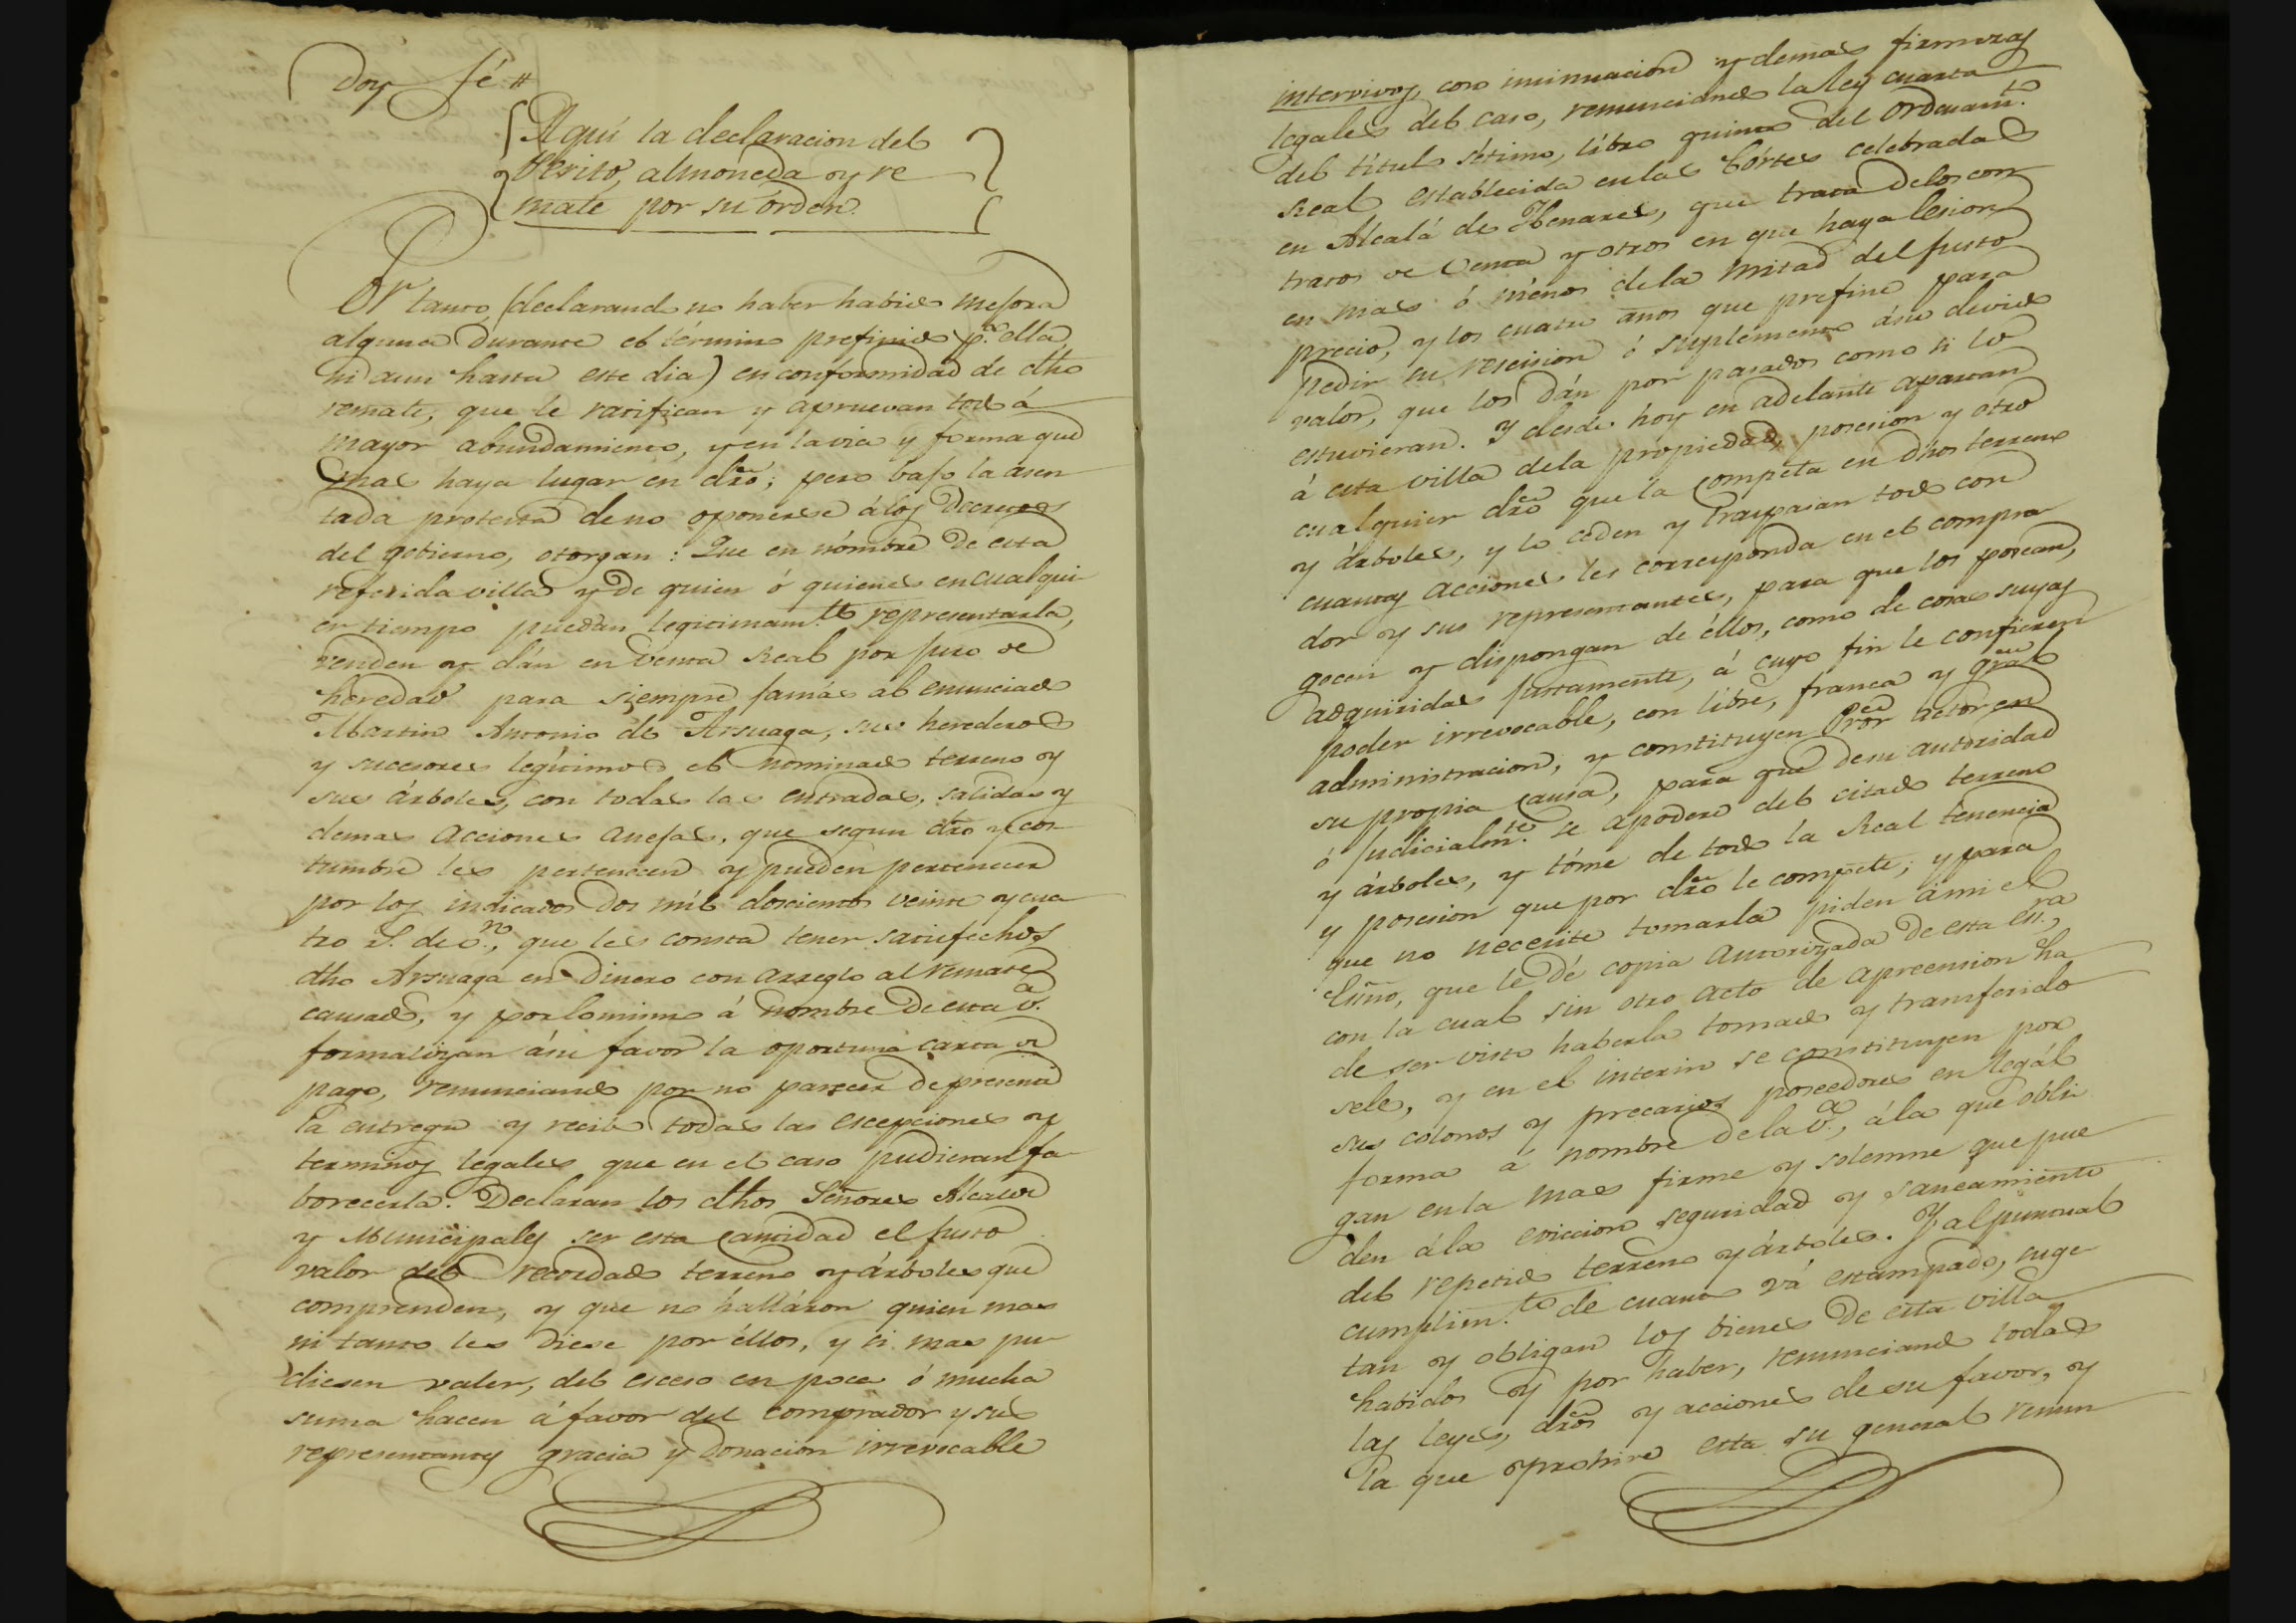 Doy fé #
Aquí la declaracion del
Perito, almoneda y re
mate por su órden.
Por tanto, (declarando no haber habido mejora
alguna durante el término prefinido p.ª ella,
ni aun hasta este dia) en conformidad de dho
remate, que le ratifican y apruevan todo á
mayor abundamiento, y en la via y forma que
mas haya lugar en dro; pero bajo la asen
tada protesta de no oponerse á los Decretos
del gobierno, otorgan: Que en nómbre de esta
referida villa y de quien ó quienes en cualqui-
er tiempo puedan legitimam.te representarla,
venden y dán en Venta Real por juro de
heredad para siempre jamás al enunciado
Martin Antonio de Arsuaga, sus herederos
y sucesores legítimos el nominado terreno y
sus árboles, con todas las entradas, salidas y
demas acciones anejas, que segun dro y cos-
tumbre les pertenecen y pueden pertenecer
por los indicados Dos mil doscientos veinte y cua
tro r.s de v.n, que les consta tener satisfechos
dho Arsuaga en Dinero con arreglo al remate
causado, y por lo mismo á nombre de esta v.ª
formalizan ásu favor la oportuna carta de
pago, renunciando por no parecer de presente
la entrega y recibo todas las escepciones y
terminos legales que en el caso pudieran fa-
borecerla. Declaran los dhos Señores Alcalde
y Municipales ser esta cantidad el justo
valor del recordado terreno y árboles que
comprenden, y que no halláron quien mas
ni tanto les diese por éllos, y si mas pu-
diesen valer, del esceso en poca ó mucha
suma hacen á favor del comprador y sus
representantes gracia y donacion irrevocable
intervivos, con insinuacion y demas firmezas
legales del caso, renunciando la ley cuarta
del título sétimo, libro quinto del Ordenam.to
Real establecida en las Córtes celebradas
en Alcalá de Henares, que trata de los con
tratos de Venta y otros en que haya lesion
en mas ó ménos de la mitad del justo
precio, y los cuatro años que prefine para
pedir su rescision ó suplemento ásu devido
valor, que los dán por pasados como si lo
estuvieran. Y desde hoy en adelante apartan
á esta villa de la própiedad, posesion y otro
cualquier dro que la competa en dhos terreno
y árboles, y lo ceden y traspasan todo con
cuantas acciones les corresponda en el compra
dor y sus representantes, para que los posean,
gocen y dispongan de éllos, como de cosas suyas
adquiridas justamente, á cuyo fin le confieren
poder irrevocable, con libre, franca y gral
administracion, y constituyen Pror actor en
su propia causa, para que de su autoridad
ó judicialm.te se apodere del citado terreno
y árboles, y tóme de todo la Real tenencia
y posesion que por dro le compete; y para
que no necesite tomarla piden á mi el
Esño, que le dé copia autorizada de esta es.ra,
con la cual sin otro acto de apreension ha
de ser visto haberla tomado y transferido
sele, y en el interin se constituyen por
sus colonos y precarios poseedores en legál
forma á nombre de la v.ª, á la que obli
gan en la mas firme y solemne que pue
den á la eviccion seguridad y saneamiento
del repetido terreno y árboles. Y al puntual
cumplim.to de cuanto vá estampado, suge
tan y obligan los bienes de esta villa
habidos y por haber, renunciando todas
las leyes, dros y acciones de su favor, y
la que prohive esta su general renun